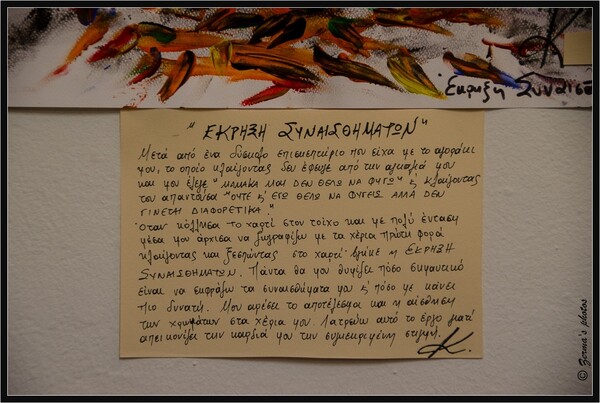 Έκρηξη Συναισθ
K
" ΕΚΡΗΞΗ ΣΥΝΑΙΣΘΗΜΑΤΩΝ "
Μετά από ένα δύσκολο επισκεπτήριο που είχα με το αγοράκι
μου, το οποίο κλαίγοντας δεν έφευγε από την αγκαλιά μου
και μου έλεγε "ΜΑΜΑΚΑ ΜΑΣ ΔΕΝ ΘΕΛΩ ΝΑ ΦΥΓΩ" & κλαίγοντας
του απαντούσα "ΟΥΤΕ & ΕΓΩ ΘΕΛΩ ΝΑ ΦΥΓΕΙΣ ΑΛΛΑ ΔΕΝ
ΓΙΝΕΤΑΙ ΔΙΑΦΟΡΕΤΙΚΑ."
Όταν κόλλησα το χαρτί στον τοίχο και με πολύ ένταση
μέσα μου άρχισα να ζωγραφίζω με τα χέρια πρώτη φορά
κλαίγοντας και ξεσπώντας στο χαρτί βγήκε η ΕΚΡΗΞΗ
ΣΥΝΑΙΣΘΗΜΑΤΩΝ. Πάντα θα μου θυμίζει πόσο σημαντικό
είναι να εκφράζω τα συναισθήματα μου & πόσο με κάνει
πιο δυνατή. Μου αρέσει το αποτέλεσμα και η αίσθηση
των χρωμάτων στα χέρια μου. Λατρεύω αυτό το έργο γιατί
απεικονίζει την καρδιά μου την συγκεκριμένη στιγμή.
K.
© Zerma's photos